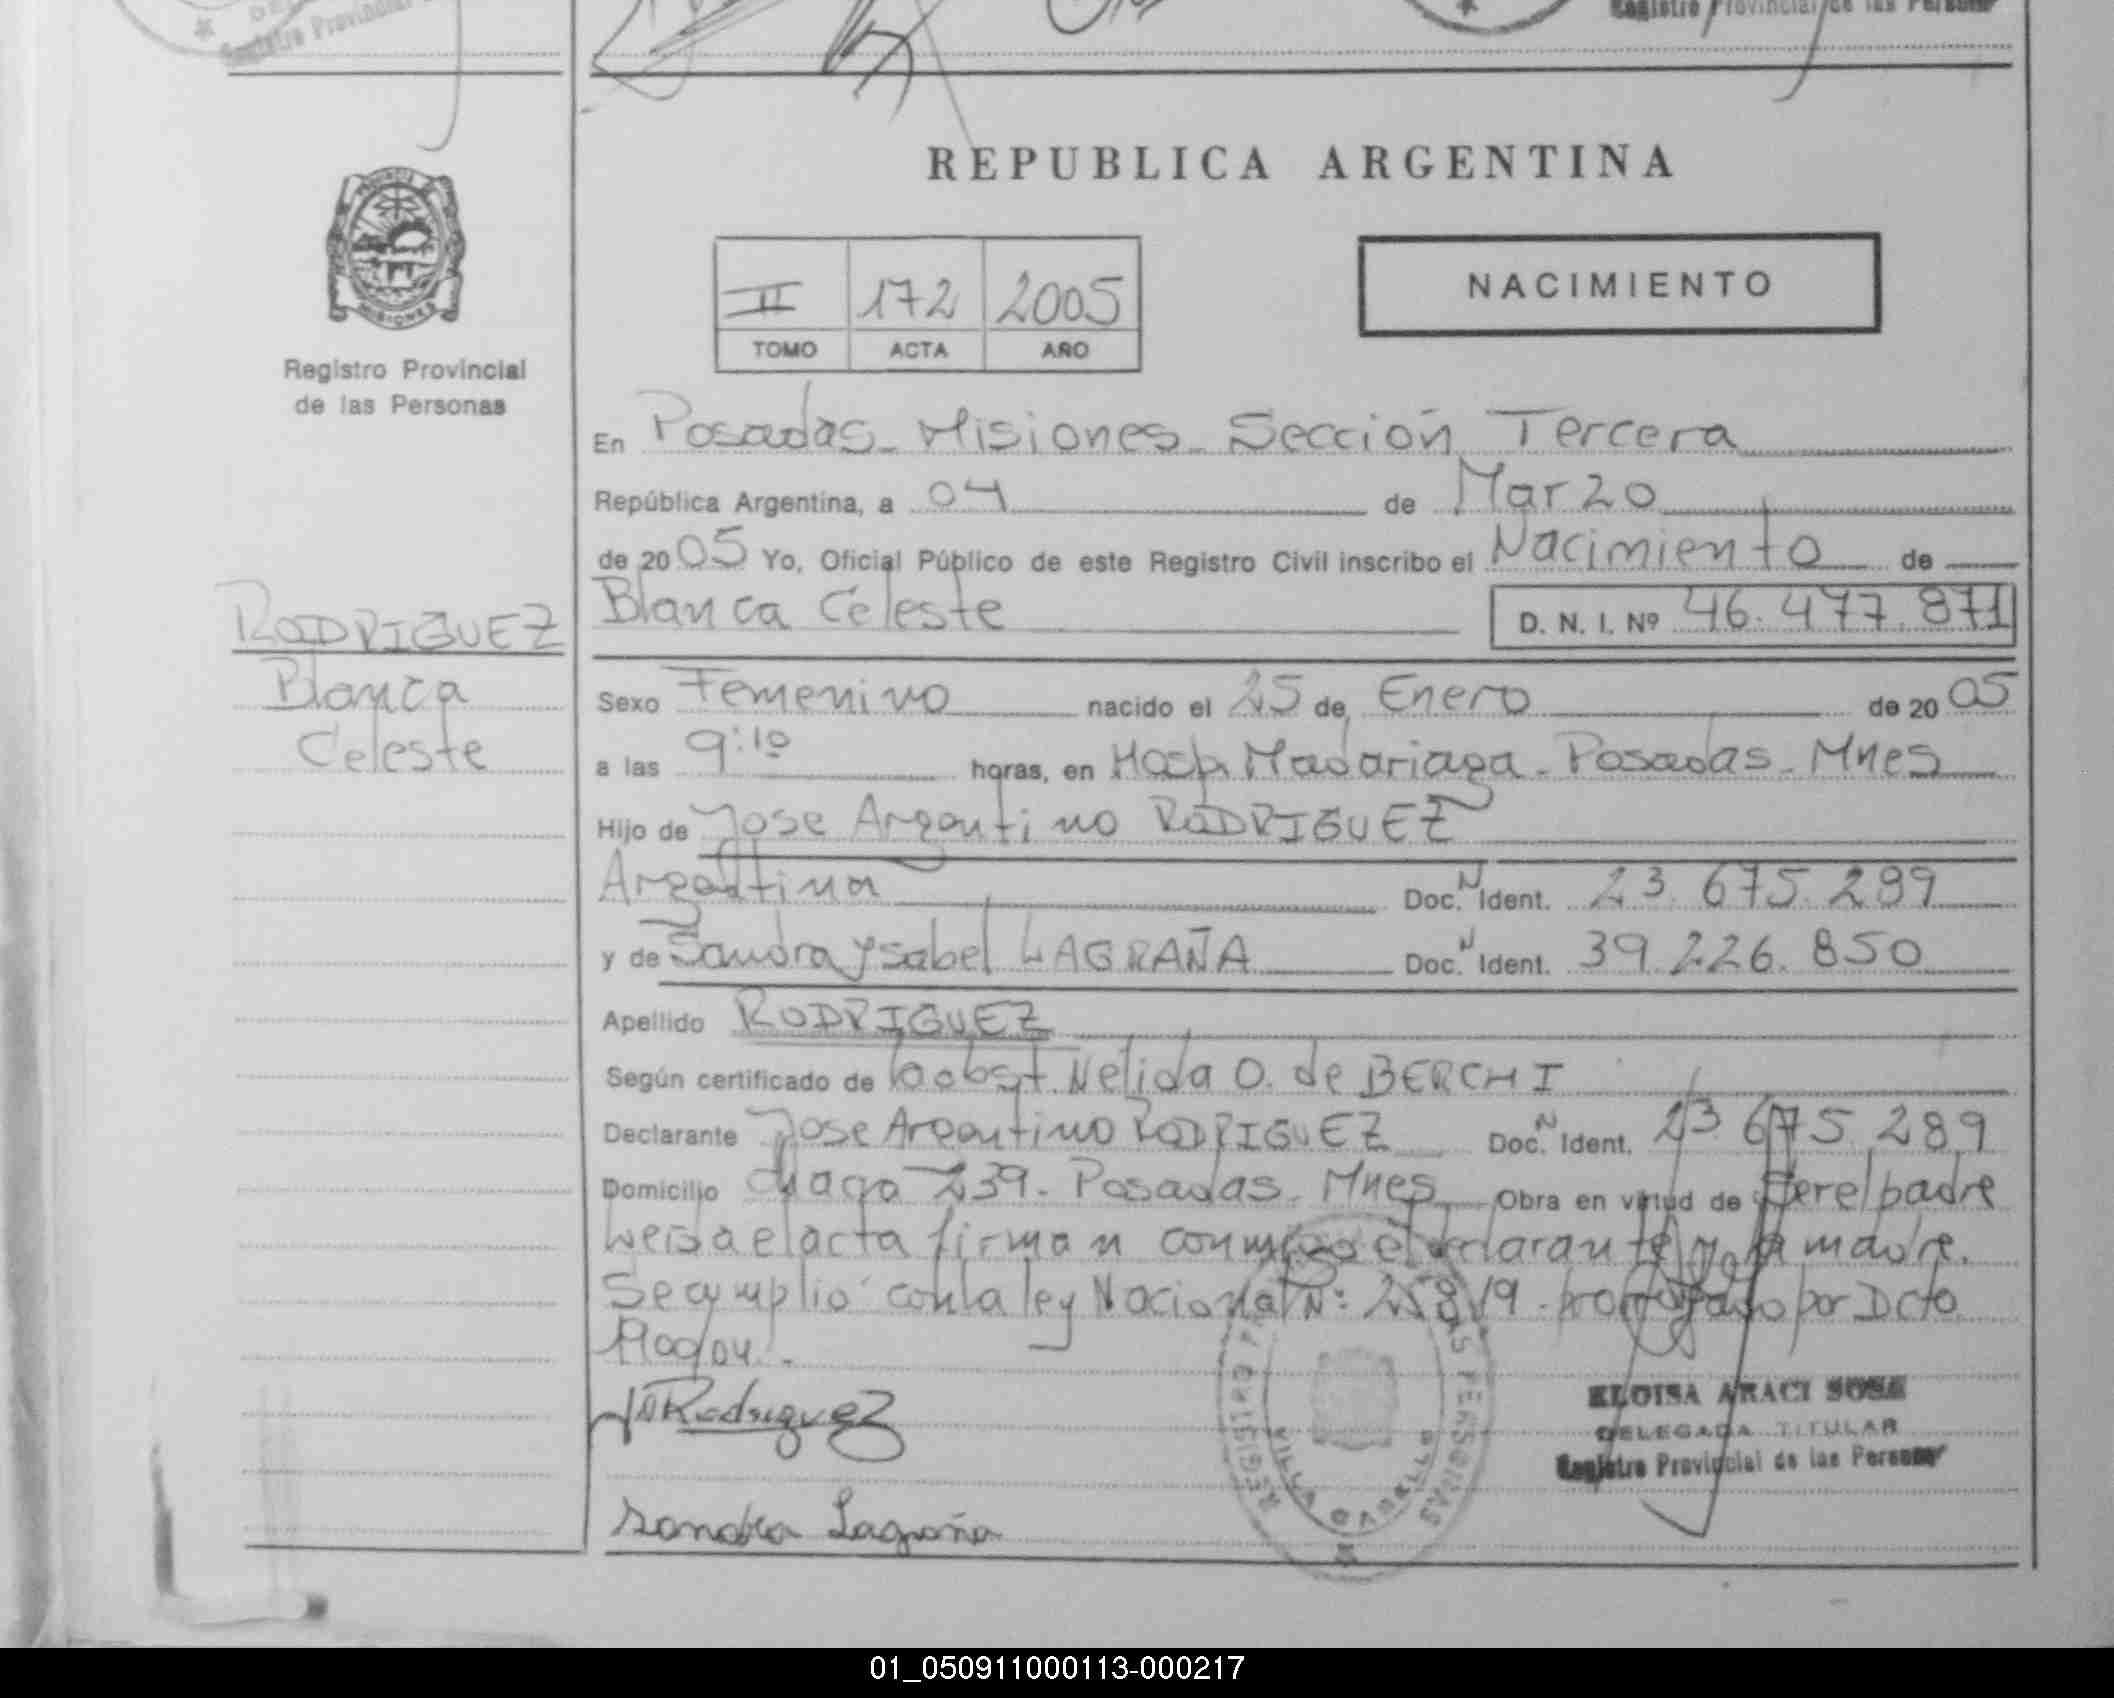 Registro Provincial de las Personas
REPUBLICA ARGENTINA
NACIMIENTO
II 172 2005
TOMO ACTA AÑO
MISIONES
Registro Provincial
de las Personas
RODRIGUEZ
Blanca
Celeste
En Posadas - Misiones - Sección Tercera
República Argentina, a 04 de Marzo
de 2005 Yo, Oficial Público de este Registro Civil inscribo el Nacimiento de
Blanca Celeste D. N. I. Nº 46.477.871
Sexo Femenino nacido el 25 de Enero de 2005
a las 9:10 horas, en Hosp. Madariaga - Posadas - Mnes
Hijo de Jose Argentino RODRIGUEZ
Argentina Doc. N Ident. 23.675.289
y de Sandra Ysabel LAGRAÑA Doc. N Ident. 39.226.850
Apellido RODRIGUEZ
Según certificado de la obst. Nelida O. de BERCHI
Declarante Jose Argentino RODRIGUEZ Doc. N Ident. 23.675.289
Domicilio 239 - Posadas - Mnes Obra en virtud de ser el padre
Leida el acta firman conmigo el declarante y la madre.
Se cumplió con la ley Nacional Nº: 25819 - prorrogado por Dcto
Rodriguez
Sandra Lagraña
REGISTRO PERSONAS
VILLA CABELLO
ELOISA ARACI SOSA
DELEGADA TITULAR
Registro Provincial de las Personas
01_050911000113-000217